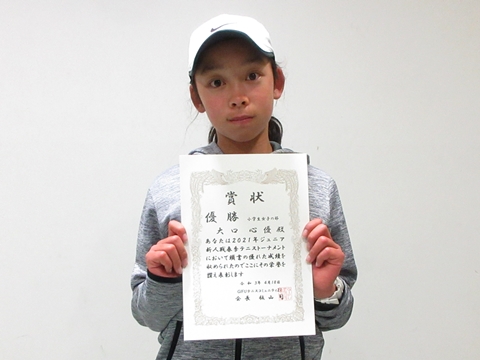 賞状
優勝 小学生女子の部
大口 心優殿
あなたは2021年ジュニア
新人戦春季テニストーナメント
において頭書の優れた成績を
収められたのでここにその栄誉を
讃え表彰します
令和3年4月18日
会長 秋山